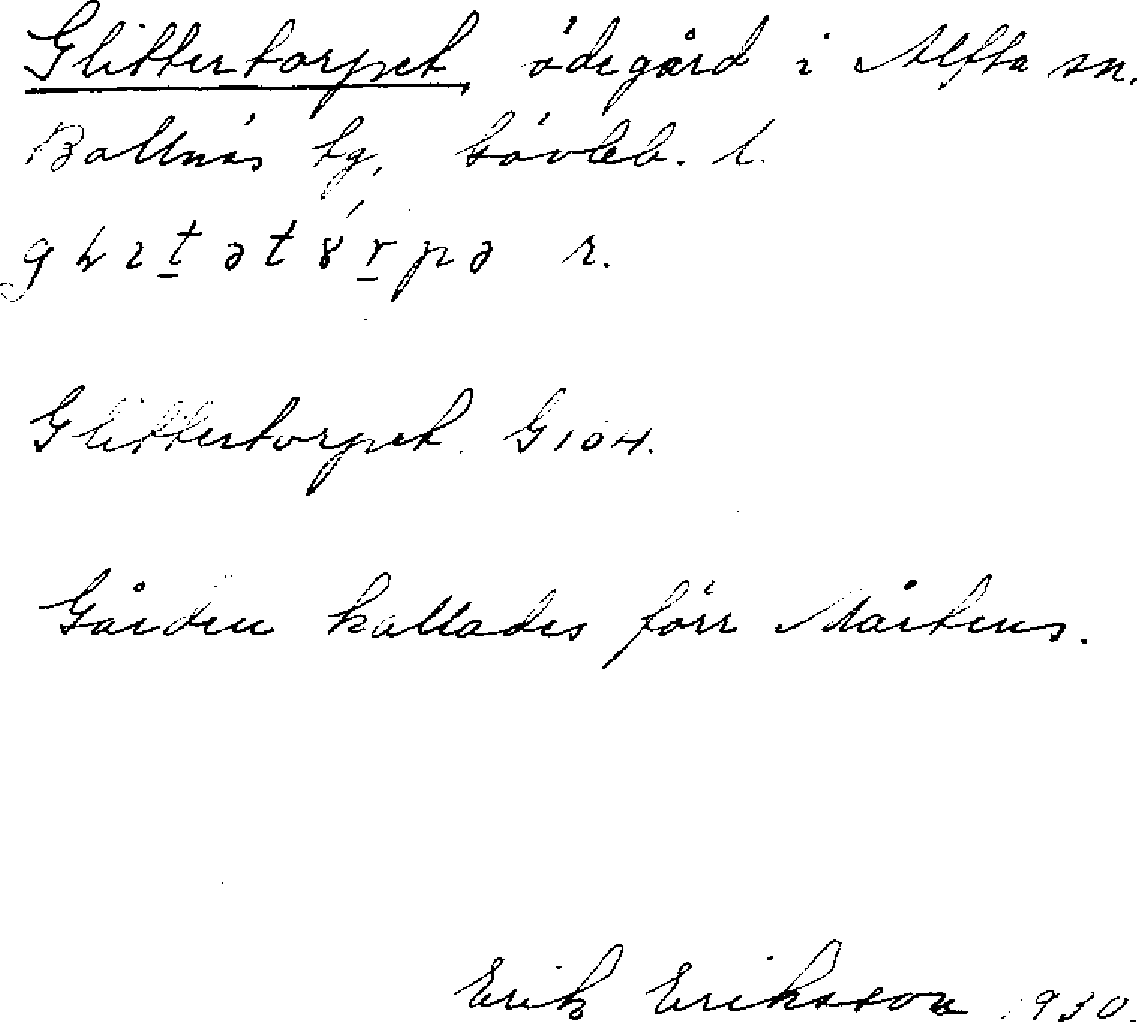 Glittertorpet, ödegård i Alfta sn.
Bollnäs tg, Gävleb. l.
r.
Glittertorpet. G104.
Gården kallades förr Mårtens.
Erik Eriksson 1930.